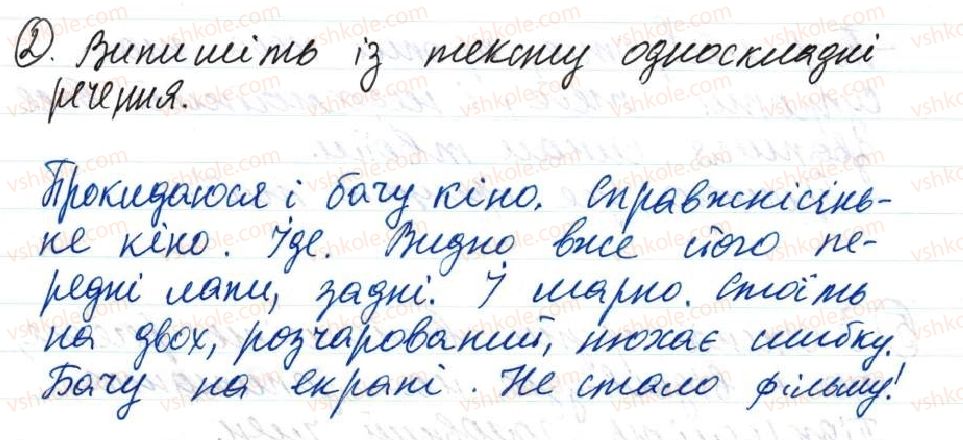 2. Випишіть із тексту односкладні
речення.
Прокидаюся і бачу кіно. Справжнісінь-
ке кіно. Іде. Видно вже його пе-
редні лапи, задні. І марно. Стоїть
на двох, розчарований, нюхає шибку.
Бачу на екрані. Не стало фільму!